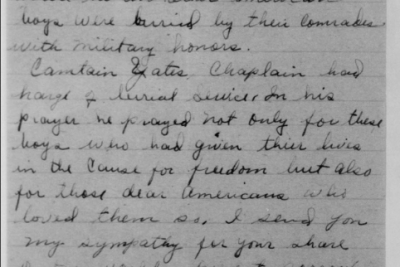 boys were burried by their comrades
with military honors.
Camtain Yates, Chaplain had
harge of burial service. In his
prayer he prayed not only for these
boys who had given thier lives
in the Cause for freedom but also
for those dear Americans who
loved them so. I send you
my sympathy for your share